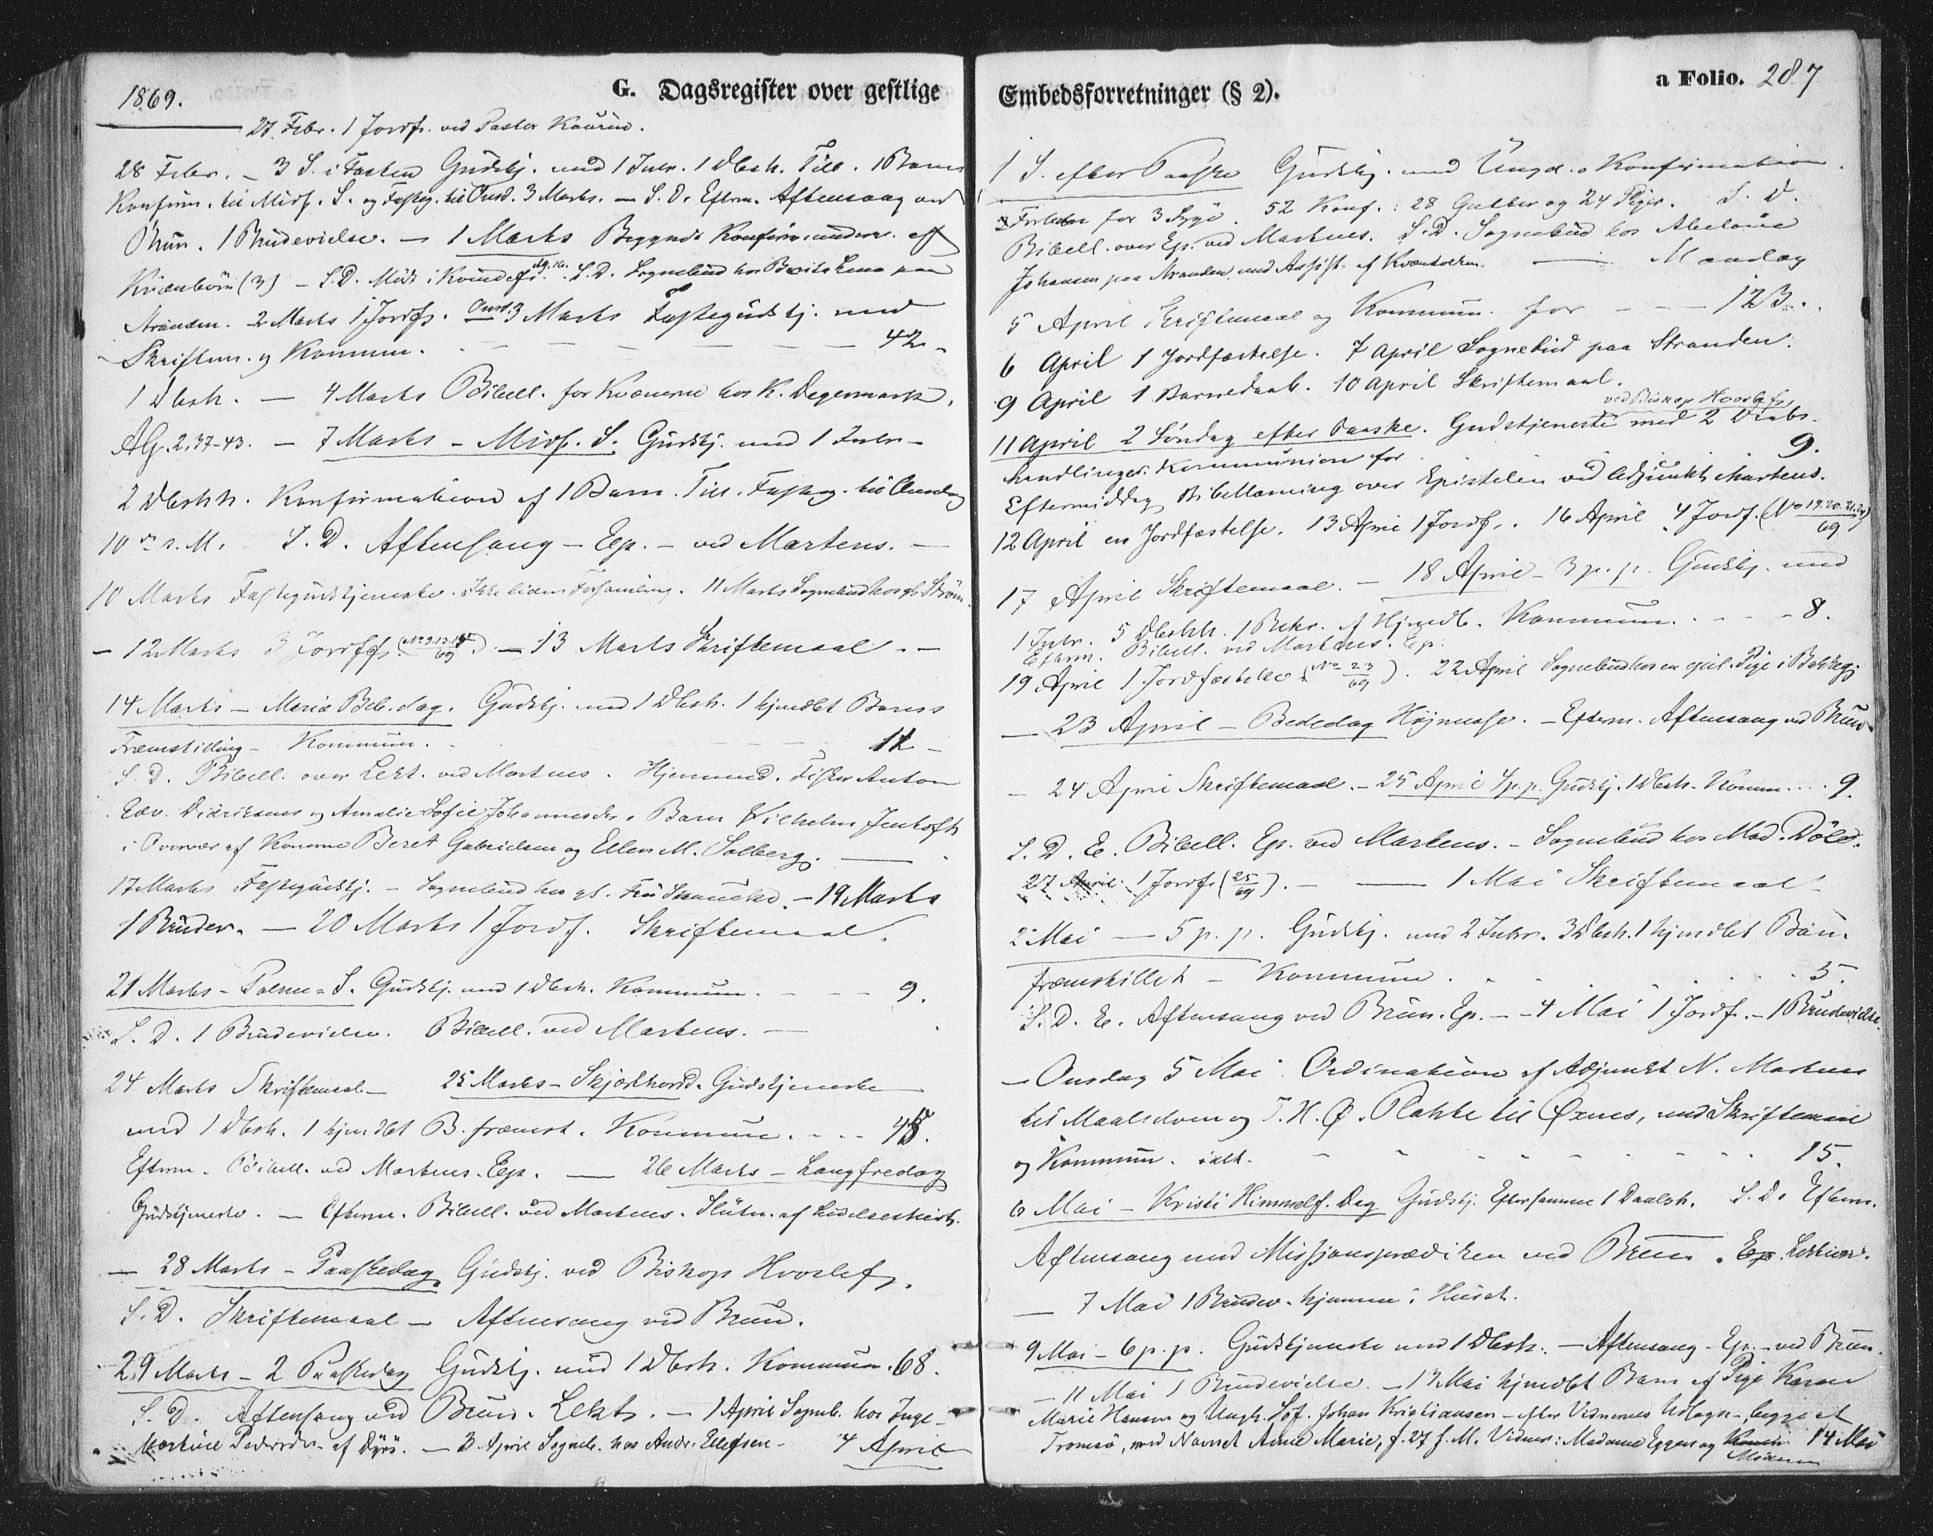 1869.
G. Dagsregister over gestlige
27 Febr. 1 Jordf. ved Pastor Kaurin.
28 Febr. – 3 S. i Fasten Gudstj. med 1 Intr. 1 Dbsh. Till. 1 Barns
Konfirm. til Midf. S. og Fasteg. til Onsd. 3 Marts. – S. D. Efterm. Aftensang ved
Brun. 1 Brudevielse. – 1 Marts Begyndt Konfirm. underv. af
Kvænbörn (3) – S. D. Möde i Kvindef. S. D. Sognebud hos Lena paa
Stranden. 2 Marts 1 Jordf. Onsd. 3 Marts Fastegudstj. med
Skriftem. og Kommun. 42
1 Dbsh. – 4 Marts Bibell. for Kvænerne hos K. Degermark.
AG. 2, 37-43. – 7 Marts – Midf. S. Gudstj. med 1 Intr. –
2 Dbshh. Konfirmation af 1 Barn. Till. Fasteg. til Onsdag
10 d. s. M. S. D. Aftensang – Ep. – ved Martens. –
10 Marts Fastegudstjeneste. Ikke liden Forsamling. 11 Marts Sognebud hos gl. Ström.
– 12 Marts 3 Jordff. – 13 Marts Skriftemaal. –
14 Marts – Mariæ Beb. dag. Gudstj. med 1 Dbsh. 1 hjemdbt Barns
Fremstilling – Kommun. 11 –
S. D. Bibell. over Lekt. ved Martens. Hjemmed. Fisker Anton
Edv. Didriksens og Amalie Sofie Johannesdr. s Barn Vilhelm Jentoft
i Overvær af Konerne Beret Gabrielsen og Ellen M. Solberg. –
17 Marts Fastegudstj. – Sognebud hos gl. Fru – 19 Marts
1 Brudev. – 20 Marts 1 Jordf. Skriftemaal.
21 Marts – Palme-S. Gudstj. med 1 Dbsh. Kommun. 9.
S. D. 1 Brudevielse. Bibell. ved Martens. –
24 Marts Skriftemaal – 25 Marts – Skjærthorsd. Gudstjeneste
med 1 Dbsh. 1 hjemdbt B. fremst. Kommun. 45.
Efterm. Bibell. ved Martens. Ep. – 26 Marts – Langfredag
Gudstjeneste. – Efterm. Bibell. ved Martens. Slutn. af Lidelseshist.
– 28 Marts – Paaskedag Gudstj. ved Biskop Hvoslef.
S. D. Skriftemaal – Aftensang ved Brun.
29 Marts – 2 Paaskedag Gudstj. med 1 Dbsh. Kommun. 68.
S. D. Aftensang ved Brun. Lekt. – 1 April Sogneb. hos Inge-
Pedersdr. af – 3 April Sogneb. hos Andr. Ellefsen – 4 April
Embedsforretninger (§ 2).
a Folio. 287
1 S. efter Paaske Gudstj. med Ungd. s Konfirmation.
Forbön for 3 Syge. 52 Konf.: 28 Gutter og 24 Piger. S. D.
Bibell. over Ep. ved Martens. S. D. Sognebud hos Abelone
Johansen paa Stranden med Assist. af – Mandag
5 April Skriftemaal og Kommun. for – – – 123.
6 April 1 Jordfæstelse. 7 April Sognebud paa Stranden.
9 April 1 Barnedaab. 10 April Skriftemaal.
ved Biskop Hvoslef
11 April 2 Söndag efter Paaske. Gudstjeneste med 2 Daabs-
handlinger. Kommunion for 9.
Eftermiddag Bibellæsning over Epistelen ved Adjunkt Martens.
12 April en Jordfæstelse. 13 April 1 Jordf. 16 April 4 Jordf.
17 April Skriftemaal. – 18 April – 3 p. p. Gudstj. med
1 Intr. 5 Dbshh. 1 Bekr. af Hjemdb. Kommun. 8.
Efterm. Bibell. ved Martens. Ep.
19 April 1 Jordfæstelse (No 23/69). 22 April Sognebud hos en Pige i
– 23 April – Bededag Höjmesse. – Efterm. Aftensang ved Brun.
– 24 April Skriftemaal. – 25 April 4 p. p. Gudstj. 1 Dbsh. Komm. 9.
S. D. E. Bibell. Ep. ved Martens. – Sognebud hos Mad. Döld.
27 April 1 Jordf. (25/69). – 1 Mai Skriftemaal
2 Mai – 5 p. p. Gudstj. med 2 Intr. 3 Dbsh. 1 hjemdbt Barn
fremstillet – Kommun. 5
S. D. E. Aftensang ved Brun. Ep. – 4 Mai 1 Jordf. – 1 Brudevielse.
– Onsdag 5 Mai Ordination af Adjunkt N. Martens
til Maalselven og T. H. Ø. til Øxnes, med Skriftemaal
og Kommun. ialt 15.
6 Mai – Kristi Himmelf. Dag Gudstj. Eftersamme 1 Daabsh. S. D. Efterm.
Aftensang med Missjonsprædiken ved Brun. Ep. Lektien.
– 7 Mai 1 Brudev. hjemme i Huset.
9 Mai – 6 p. p. Gudstjeneste med 1 Dbsh. – Aftensang – Ep. – ved Brun.
– 11 Mai 1 Brudevielse. – 13 Mai hjemdbt Barn af Pige Karen
Marie Hansen og Ungk. Söf. Johan Kristiansen – efter Vidnernes Udsagn – begge af
Tromsö, med Navnet Anne Marie, f. 27 f. M. Vidner: Madame Eggen og 14 Mai